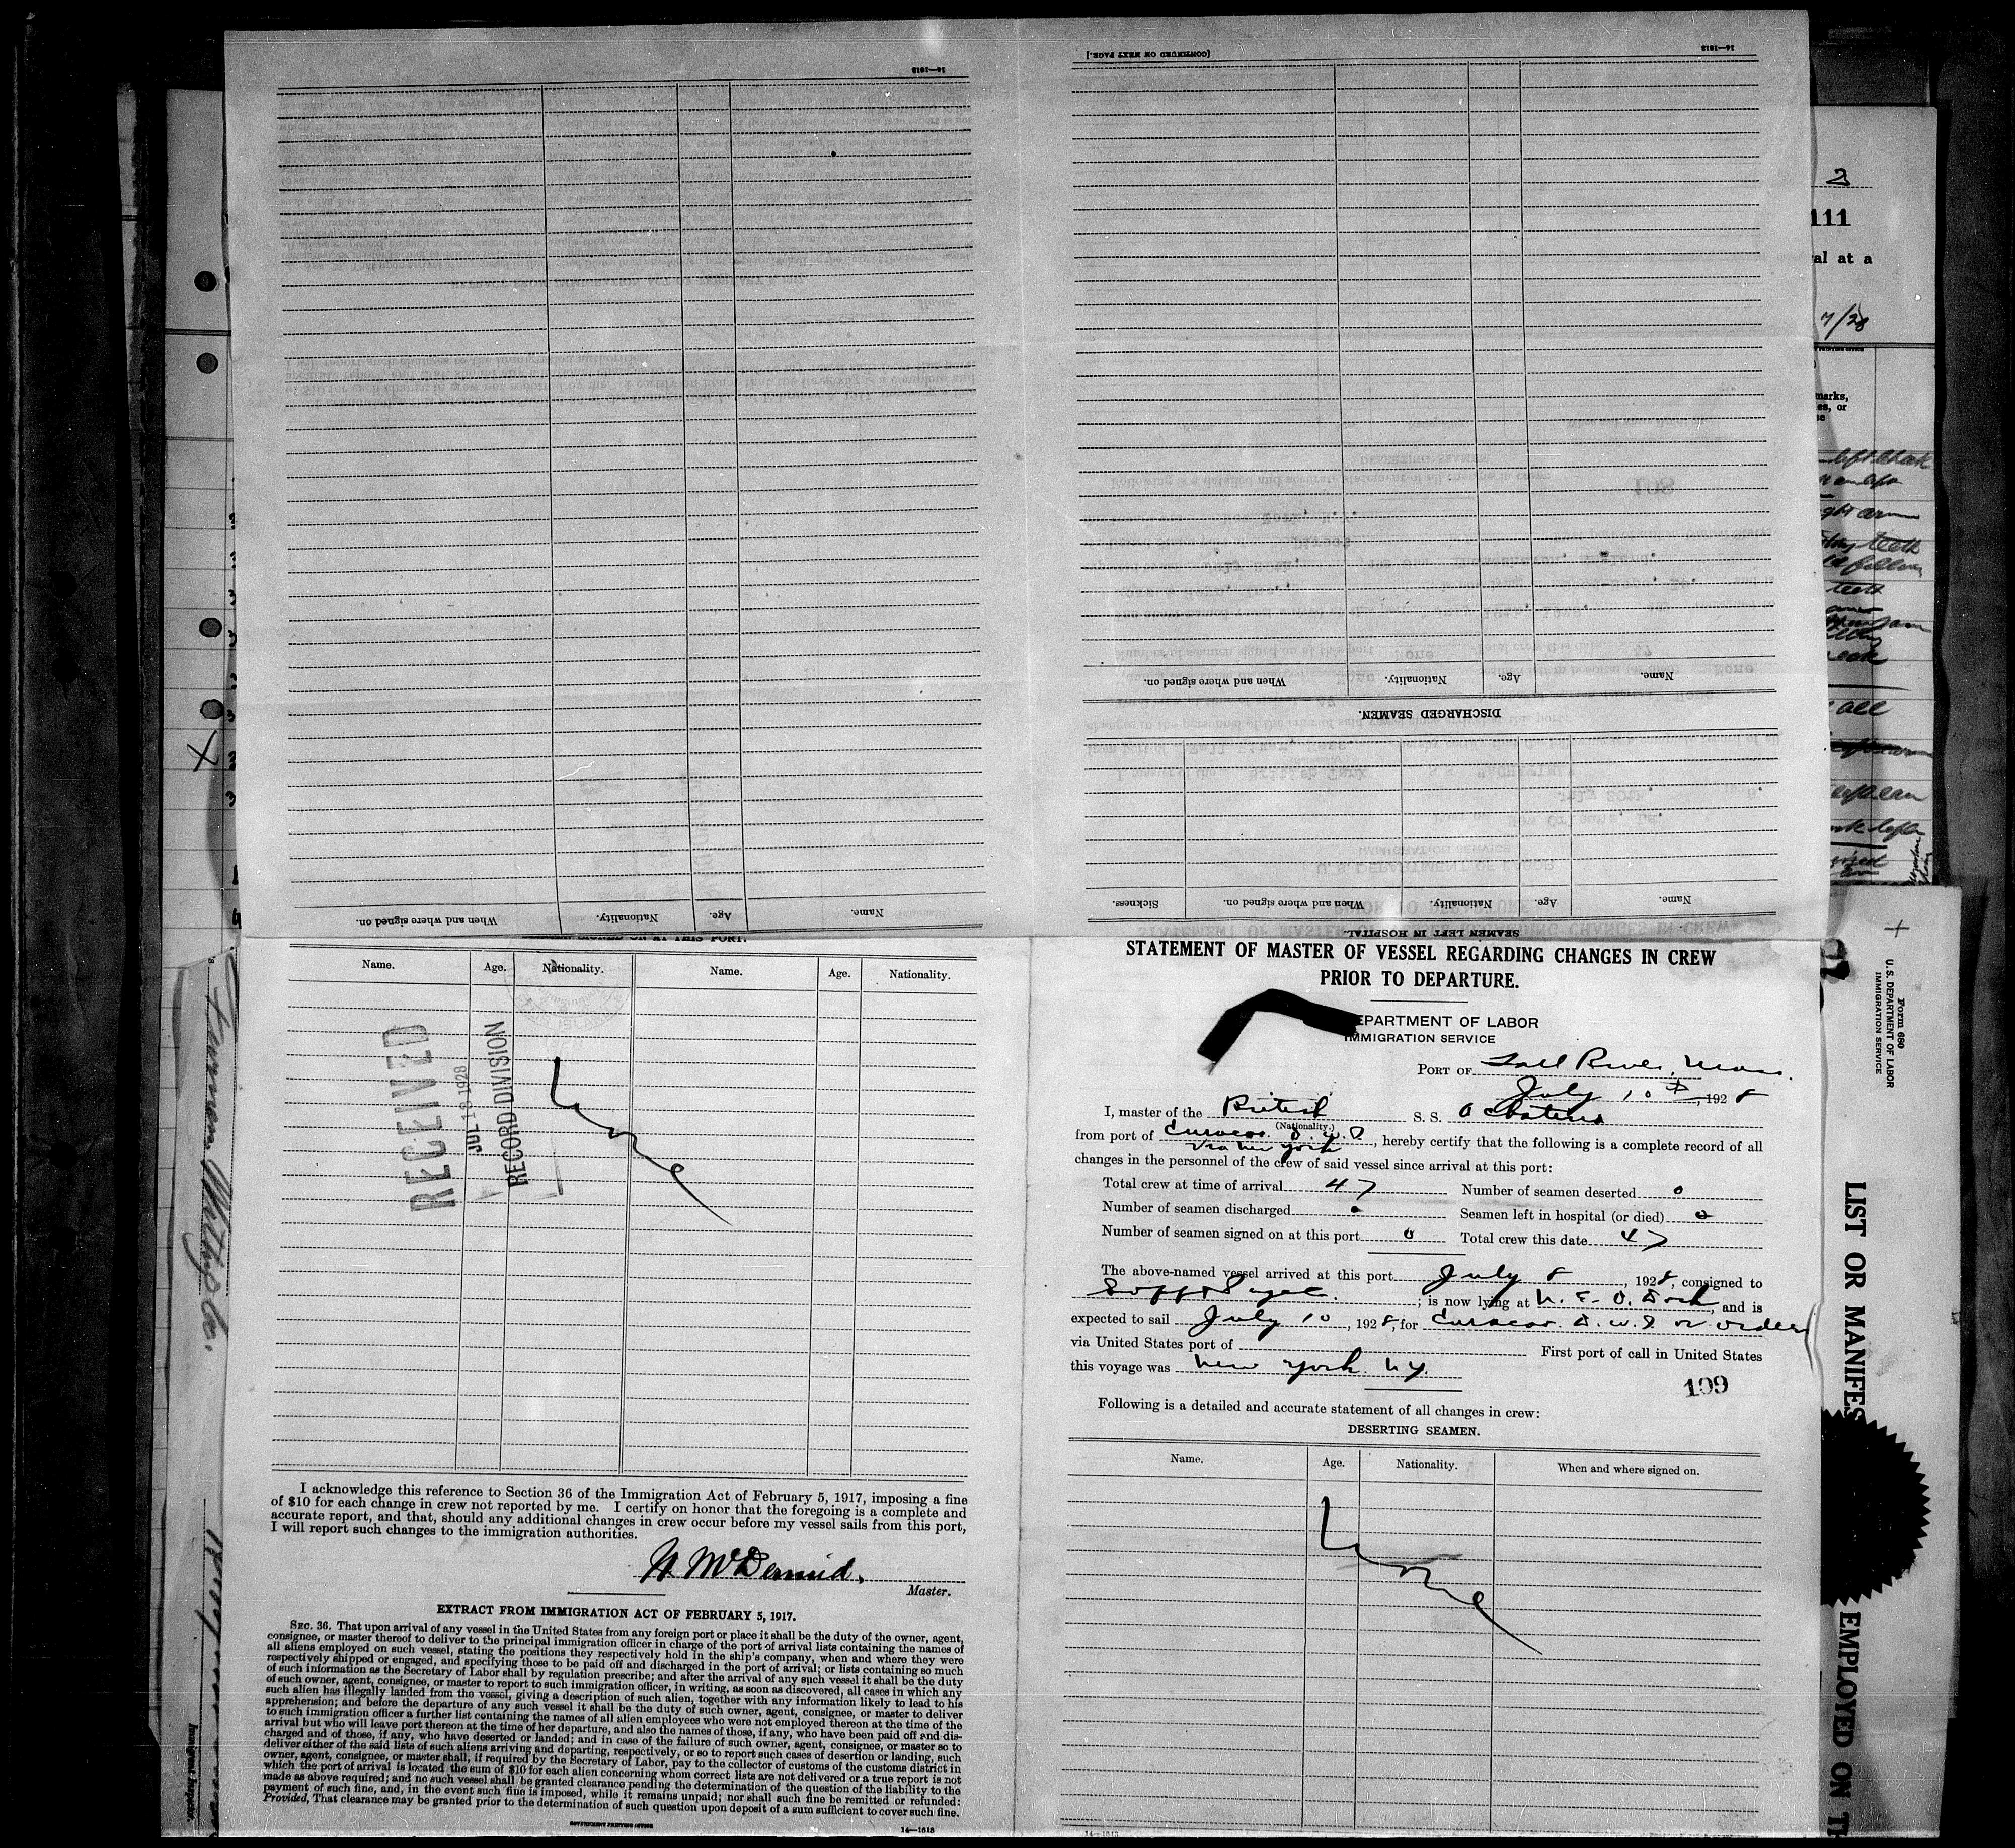 14—1613
[CONTINUED ON NEXT PAGE.]
14—1613
When and where signed on.
Nationality.
Age.
Name.
DISCHARGED SEAMEN.
Name.
Age.
Nationality.
When and where signed on.
Sickness.
Name.
Age.
Nationality.
When and where signed on.
SEAMEN LEFT IN HOSPITAL.
2
111
al at a
7/28
marks,
es, or
left cheek
ght arm
teeth
teeth
all
ON AT THIS PORT.
Name.
Age.
Nationality.
Name.
Age.
Nationality.
RECEIVED
JUL 13 1928
RECORD DIVISION
None
I acknowledge this reference to Section 36 of the Immigration Act of February 5, 1917, imposing a fine
of $10 for each change in crew not reported by me. I certify on honor that the foregoing is a complete and
accurate report, and that, should any additional changes in crew occur before my vessel sails from this port,
I will report such changes to the immigration authorities.
McDermid.
Master.
EXTRACT FROM IMMIGRATION ACT OF FEBRUARY 5, 1917.
SEC. 36. That upon arrival of any vessel in the United States from any foreign port or place it shall be the duty of the owner, agent,
consignee, or master thereof to deliver to the principal immigration officer in charge of the port of arrival lists containing the names of
all aliens employed on such vessel, stating the positions they respectively hold in the ship's company, when and where they were
respectively shipped or engaged, and specifying those to be paid off and discharged in the port of arrival; or lists containing so much
of such information as the Secretary of Labor shall by regulation prescribe; and after the arrival of any such vessel it shall be the duty
of such owner, agent, consignee, or master to report to such immigration officer, in writing, as soon as discovered, all cases in which any
such alien has illegally landed from the vessel, giving a description of such alien, together with any information likely to lead to his
apprehension; and before the departure of any such vessel it shall be the duty of such owner, agent, consignee, or master to deliver
to such immigration officer a further list containing the names of all alien employees who were not employed thereon at the time of the
arrival but who will leave port thereon at the time of her departure, and also the names of those, if any, who have been paid off and dis-
charged and of those, if any, who have deserted or landed; and in case of the failure of such owner, agent, consignee, or master so to
deliver either of the said lists of such aliens arriving and departing, respectively, or so to report such cases of desertion or landing, such
owner, agent, consignee, or master shall, if required by the Secretary of Labor, pay to the collector of customs of the customs district in
which the port of arrival is located the sum of $10 for each alien concerning whom correct lists are not delivered or a true report is not
made as above required; and no such vessel shall be granted clearance pending the determination of the question of the liability to the
payment of such fine, and, in the event such fine is imposed, while it remains unpaid; nor shall such fine be remitted or refunded:
Provided, That clearance may be granted prior to the determination of such question upon deposit of a sum sufficient to cover such fine.
GOVERNMENT PRINTING OFFICE
14—1613
STATEMENT OF MASTER OF VESSEL REGARDING CHANGES IN CREW
PRIOR TO DEPARTURE.
DEPARTMENT OF LABOR
IMMIGRATION SERVICE
PORT OF Fall River, Mass.
July 10th, 1928
I, master of the British S. S.
(Nationality.)
from port of Curacao D.W.I, hereby certify that the following is a complete record of all
via New York
changes in the personnel of the crew of said vessel since arrival at this port:
Total crew at time of arrival 47 Number of seamen deserted 0
Number of seamen discharged 0 Seamen left in hospital (or died) 0
Number of seamen signed on at this port 0 Total crew this date 47
The above-named vessel arrived at this port July 8, 1928, consigned to
; is now lying at N. E. O. Dock, and is
expected to sail July 10, 1928, for Curacao. D.W.I or orders
via United States port of First port of call in United States
this voyage was New York NY.
199
Following is a detailed and accurate statement of all changes in crew:
DESERTING SEAMEN.
Name.
Age.
Nationality.
When and where signed on.
None
14—1613
Form 680
U. S. DEPARTMENT OF LABOR
IMMIGRATION SERVICE
LIST OR MANIFES
EMPLOYED ON TH
Immigrant Inspector.